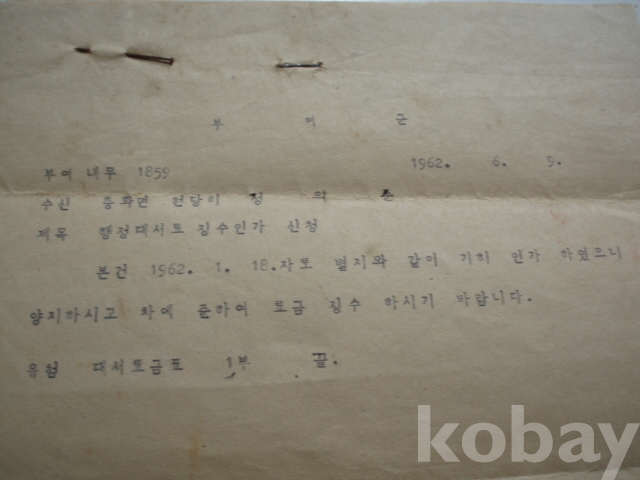 부 여 군
부여 내무 1859 1962. 6. 9.
수신 충화면 현당리 정
제목 행정대서료 징수인가 신청
본건 1962. 1. 18.자로 별지와 같이 기히 인가 하였으니
양지하시고 차에 준하여 요금 징수 하시기 바랍니다.
유첨 대서요금표 1부 끝.
kobay